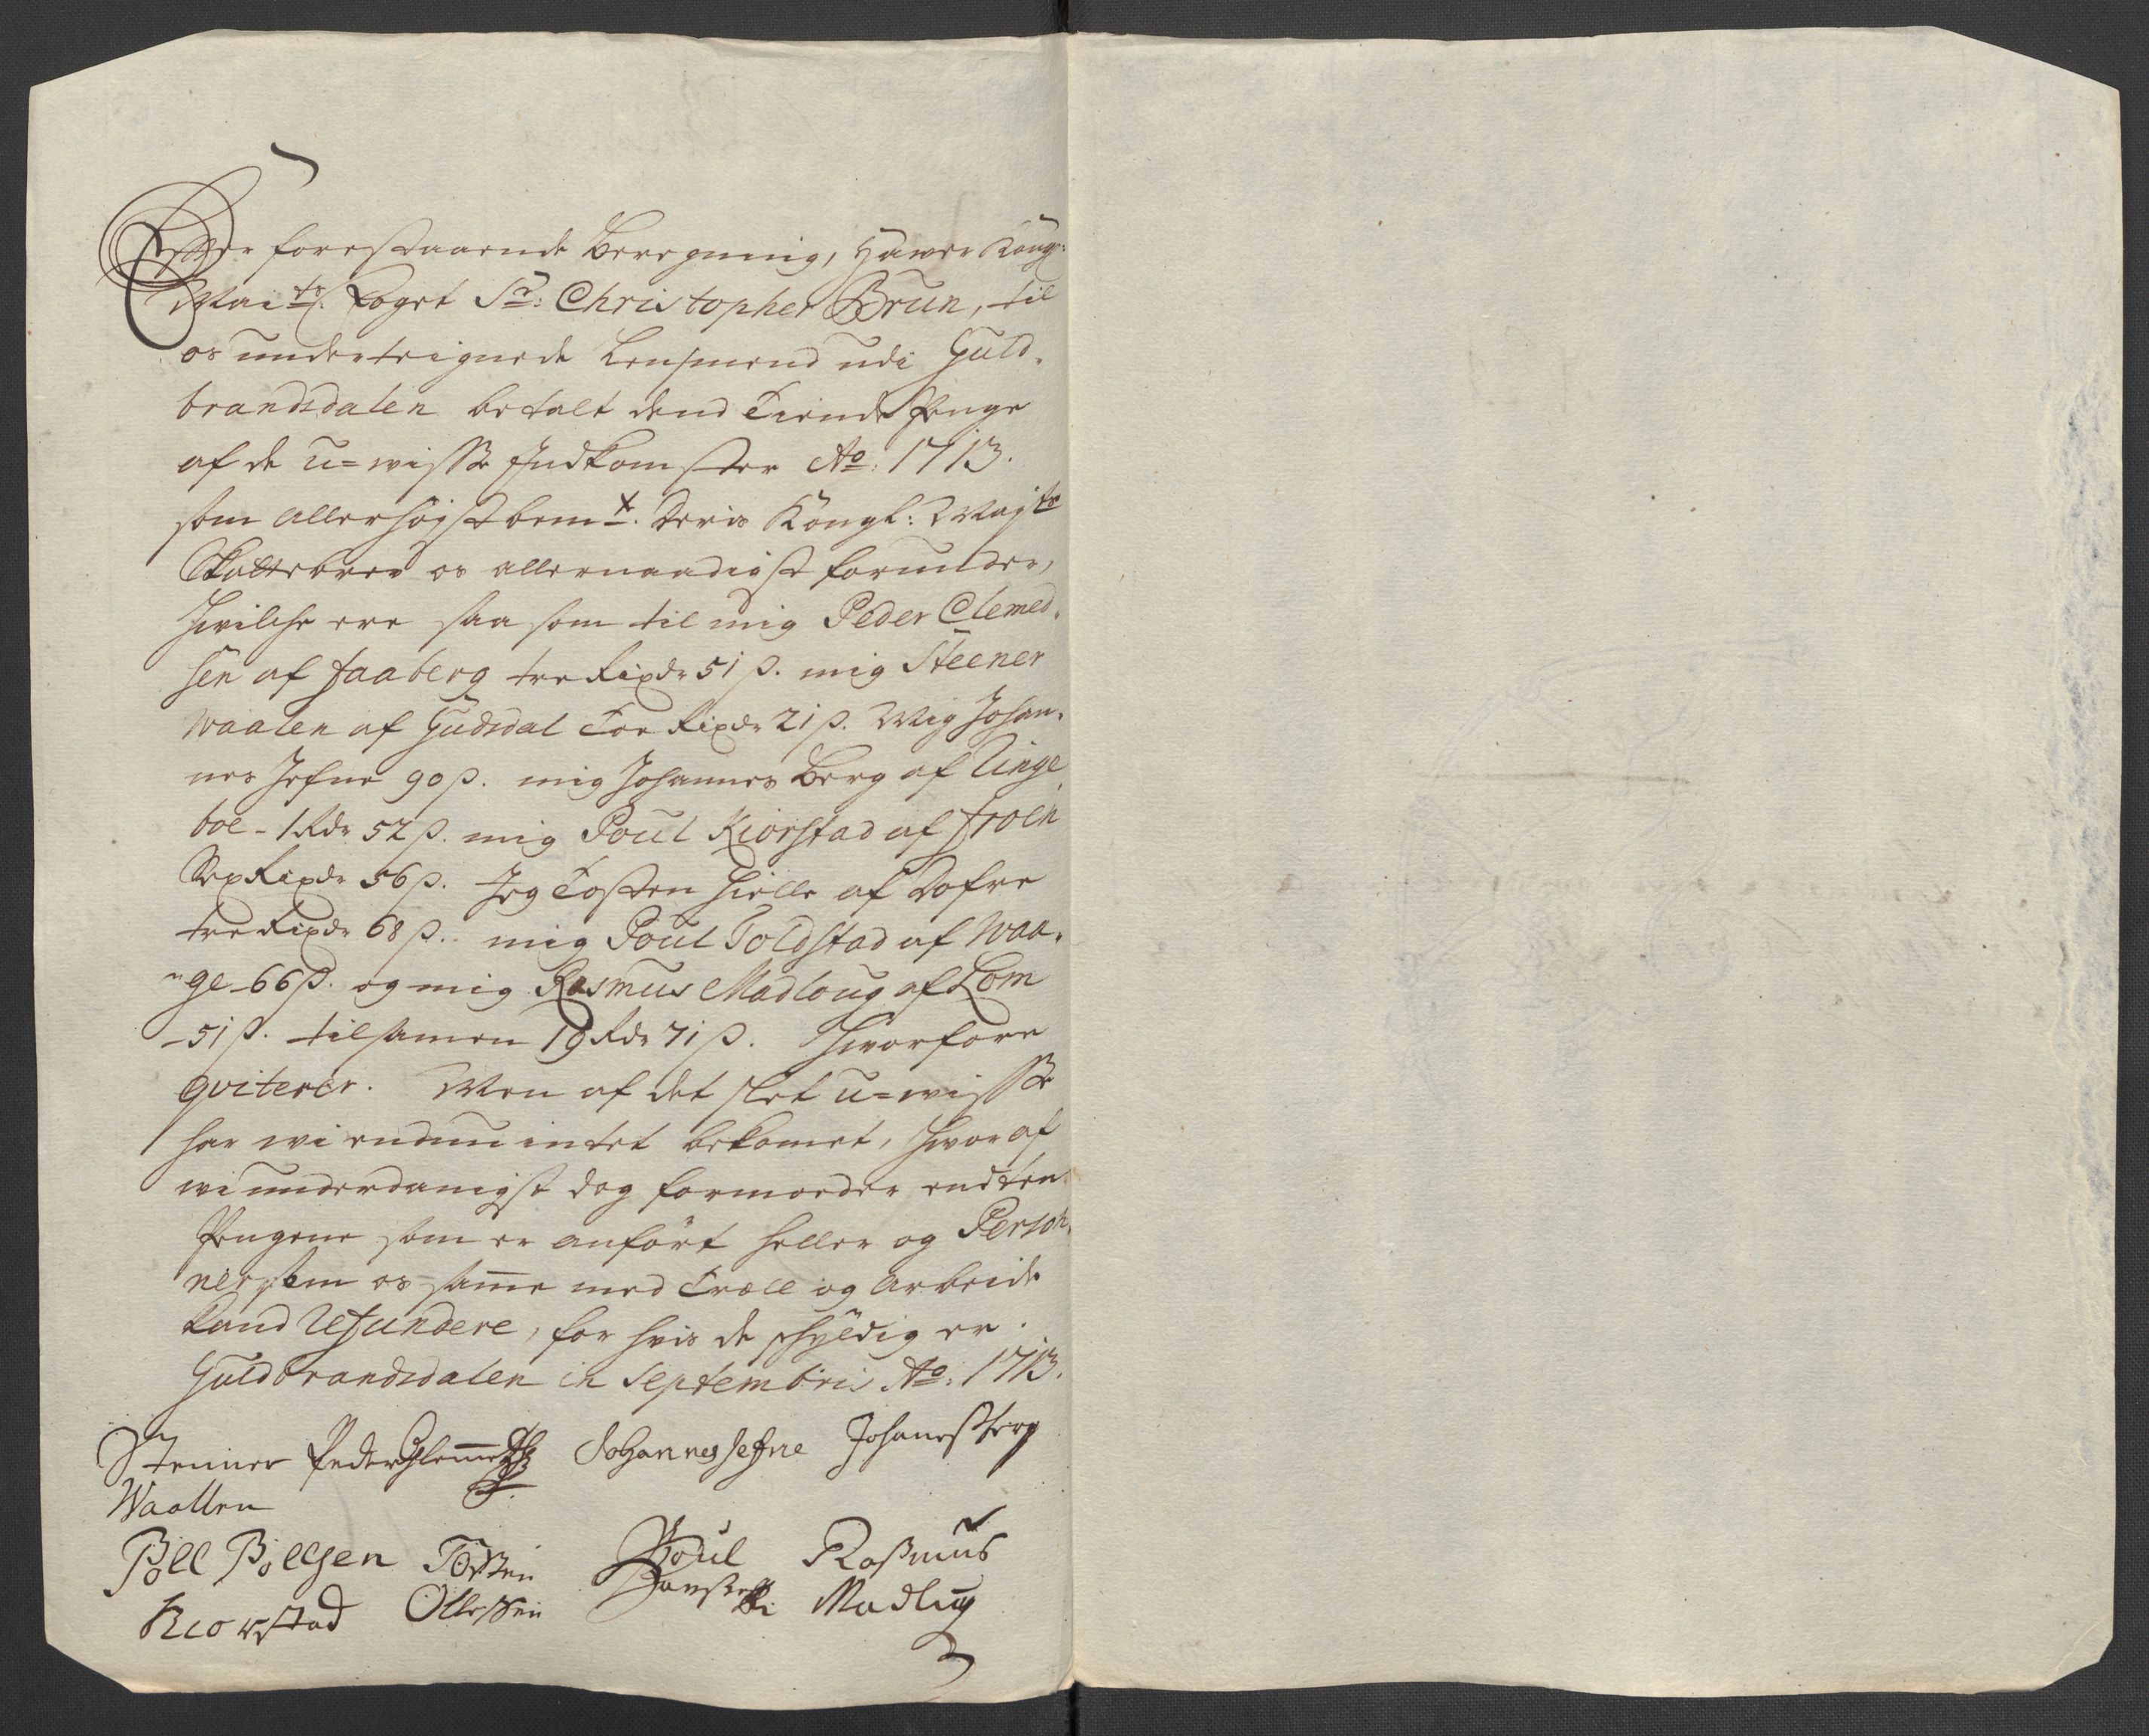 Efter forestaaende Beregning, Hawer Kongl:
Mai.ts Foget Sr: Christopher Brun, til
os underteignede Lensmend udi Guld-
brandsdalen betalt dend Tiende Penge
af de u=wisse Indkomster Ao: 1713.
som allerhøgstbemt. Deris Kongl: Majts
Skattebrev os allernaadigst forunder,
Hvilche ere saa som til mig Peder Clemed-
sen af Faaberg tre Rixdr 51 ß. mig Steener
Waalen af Gudsdal Toe Rixdr 21 ß. Mig Johan-
nes Jefne 90 ß. mig Johannes Berg af Ringe-
boe - 1 Rdr 52 ß. mig Poul Kiorstad af Froen
Sex Rixdr 56 ß. Jeg Tosten Hielle af Dofre
tre Rixdr 68 ß. mig Poul Toldstad af Waa-
ge - 66 ß. og mig Rasmus Madloug af Lom
- 51 ß. tilsamen 19 Rdr 71 ß. Hvorfore
qviterer. Men af det slet u=wisse
har wi endnu intet bekomet, Hvor af
wi underdanigst dog formoder endten
Pengene som er anført heller og Person-
ner som os same med Træll og Arbeide
kand Refundere, for hvis de schyldig er.
Guldbrandsdalen in Septembris Ao: 1713.
Stenner Peder Johannes Jefne Johanes Berg
Waallen
Poll Pollsen Tosten Poul Rasmus
Kiorstad Ollessen Madlug